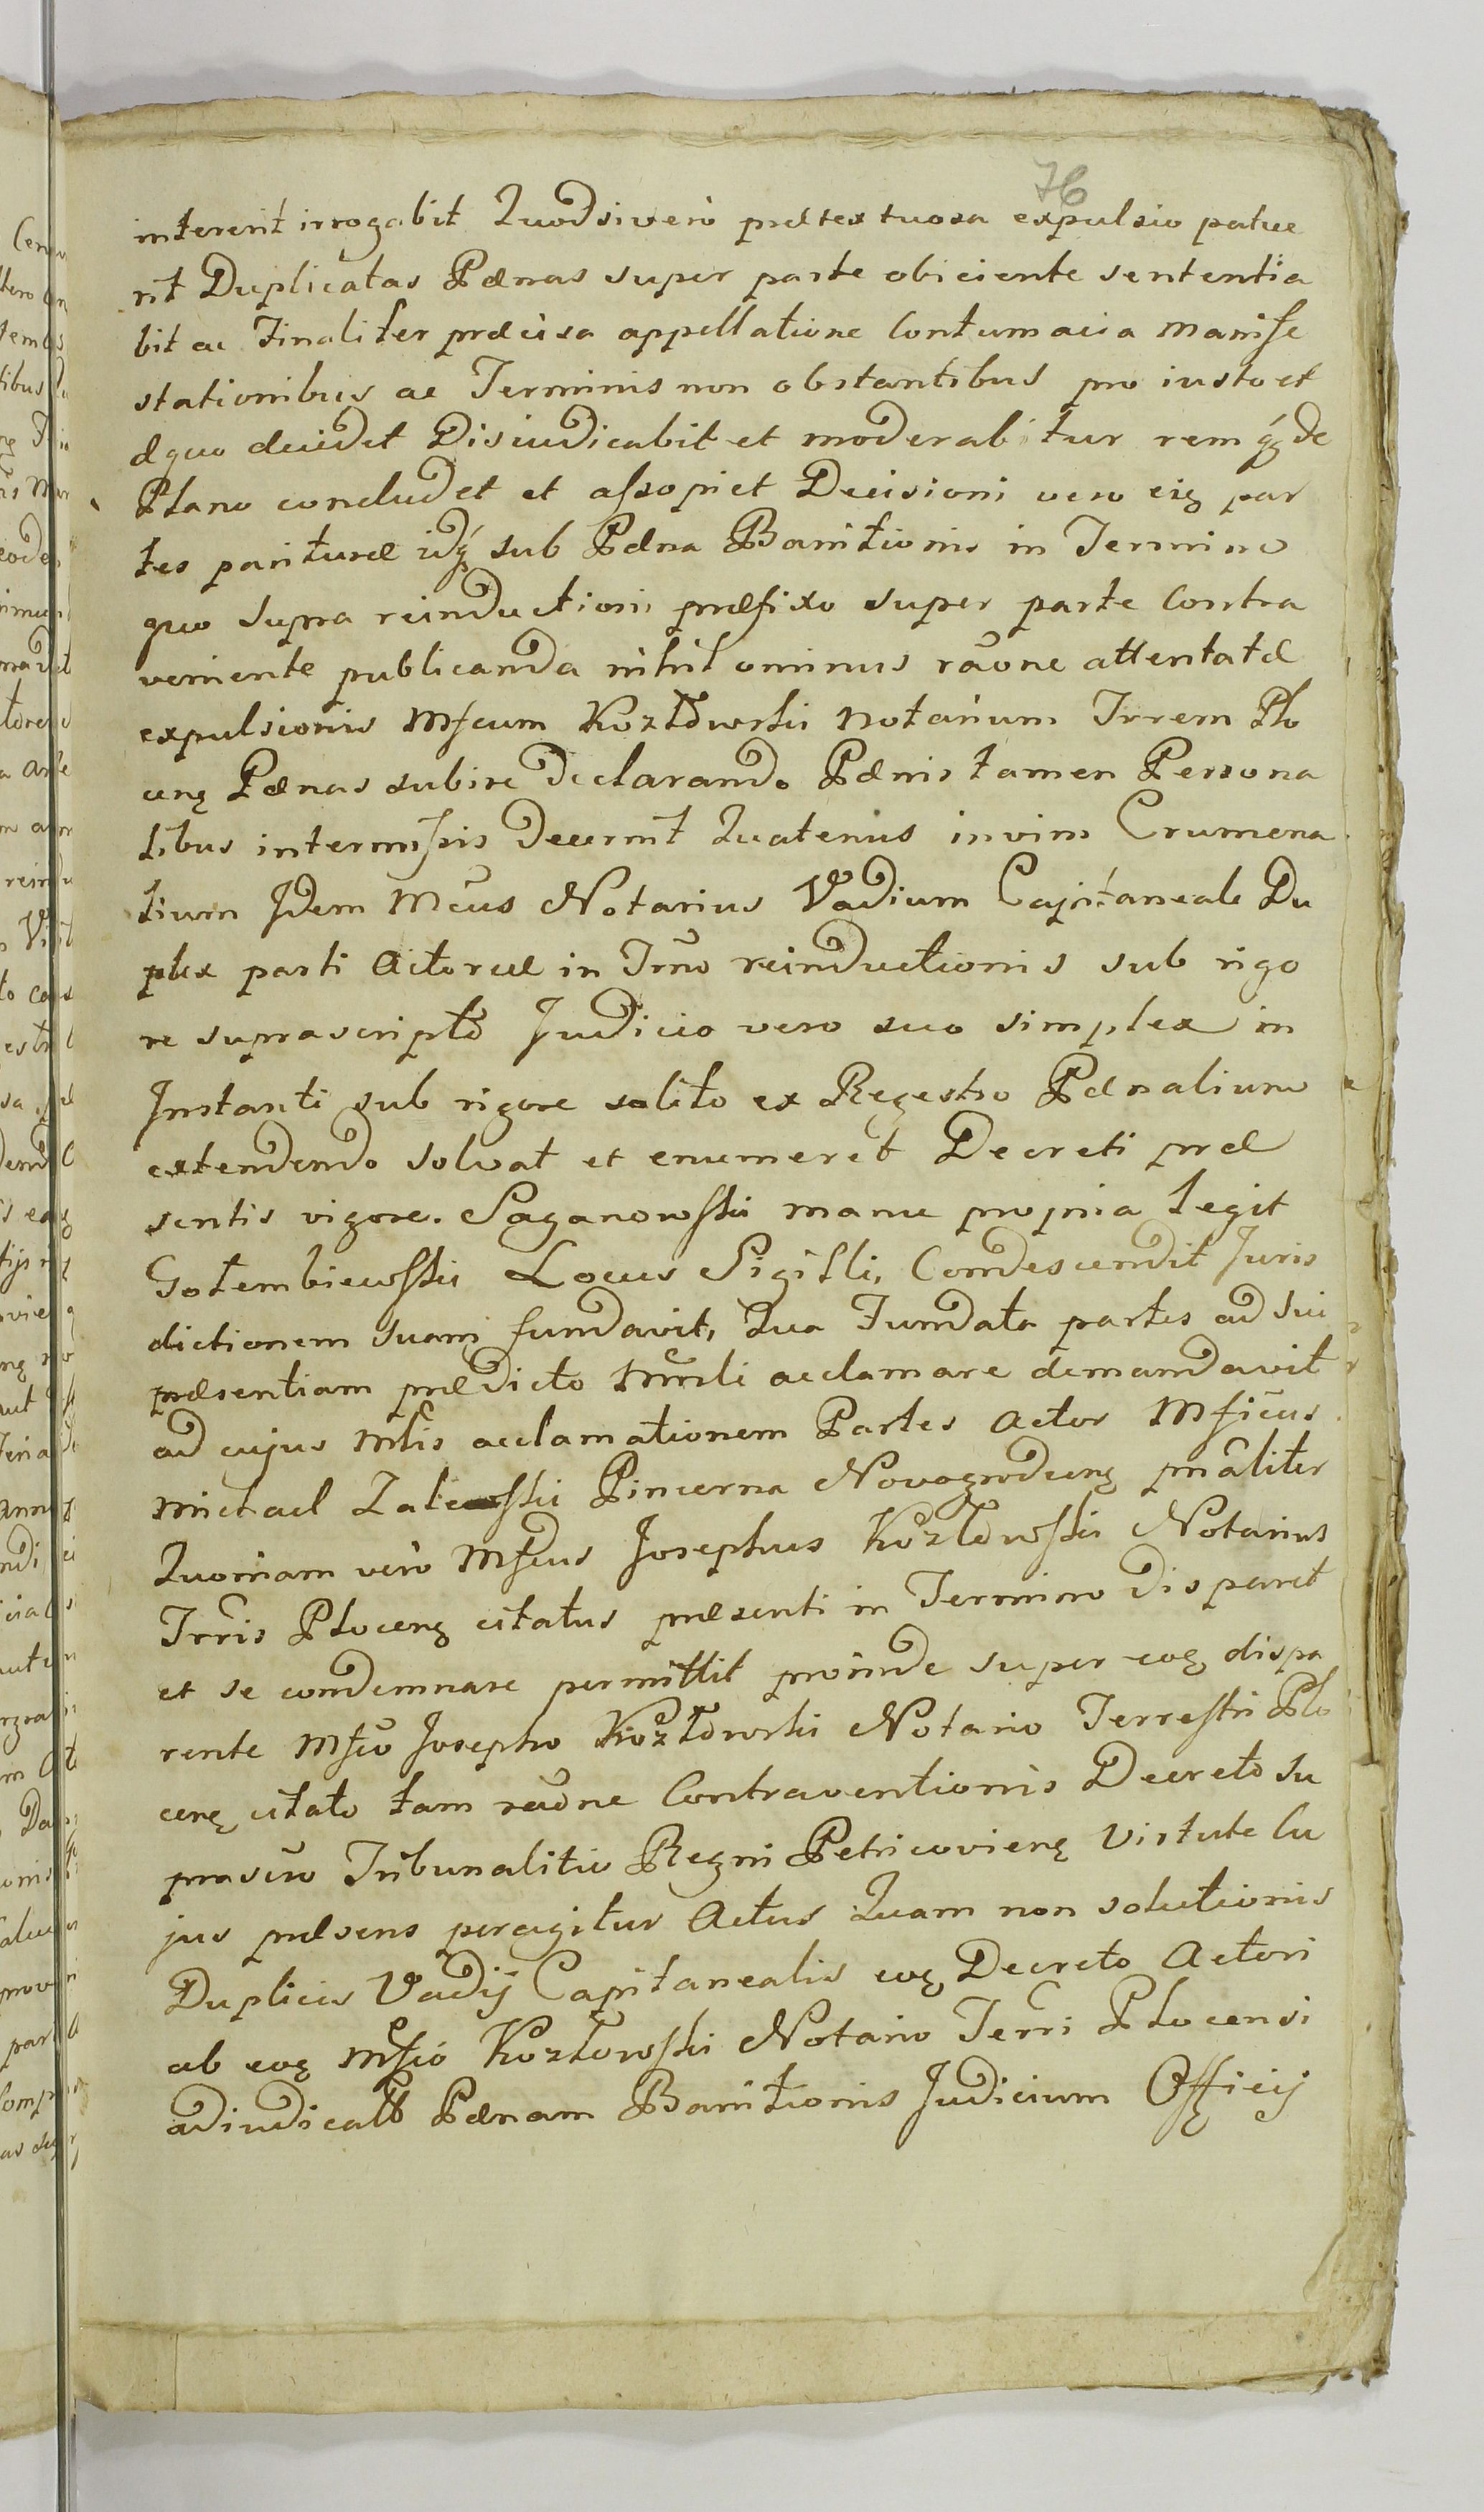 76
intererit irrogabit Quodsi vero prætextuosa expulsio patue
rit Duplicatas Pænas super parte obiciente sententia
bit ac Finaliter præcisa appellatione Contumacia Manife
stationibus ac Terminis non obstantibus pro iusto et
æquo decidet Disiudicabit et moderabitur remq́ꝫ de
Plano concludet et assopiet Decisioni vero eiꝫ par
tes parituræ idq́ꝫ sub Pæna Banitionis in Termino
quo supra reinductioni præfixo super parte Contra
veniente publicanda nihilominus raōne attentatæ
expulsionis Mfcum Kozłowski Notarium Trrem Plo
cenꝫ Pænas subire declarando Pænis tamen Persona
libus intermissis decernit Quatenus in vim Crumena
lium Idem Mcus Notarius Vadium Capitaneale Du
plex parti Actoreæ in Trno reinductionis sub rigo
re suprascripto Judicio vero suo simplex in
Instanti sub rigore solito ex Regestro Pænalium
extendendo solvat et enumeret Decreti præ
sentis vigore. Saganowski manu propria Legit
Gotembiewski Locus Sigilli, Condescendit Juris
dictionem suam fundavit, Qua Fundata partes ad sui
præsentiam prædicto Mrli acclamare demandavit
ad cujus Mlis acclamationem Partes Actor Mficus
Michael Zalewski Pincerna Novogrodcenꝫ prnāliter
Quoniam vero Mfcus Josephus Kozłowski Notarius
Trris Plocenꝫ citatus præsenti in Termino disparet
et se condemnare permittit proinde super eoꝫ dispa
rente Mfco Josepho Kozłowski Notario Terrestri Plo
cenꝫ citato tam raōne Contraventionis Decreto su
prascro Tribunalitio Regni Petricovienꝫ Virtute Cu
jus præsens peragitur Actus Quam non solutionis
Duplicis Vadij Capitanealis eoꝫ Decreto Actori
ab eoꝫ Mfco Kozłowski Notario Terri Plocensi
adiudicati Pænam Banitionis Judicium Officij